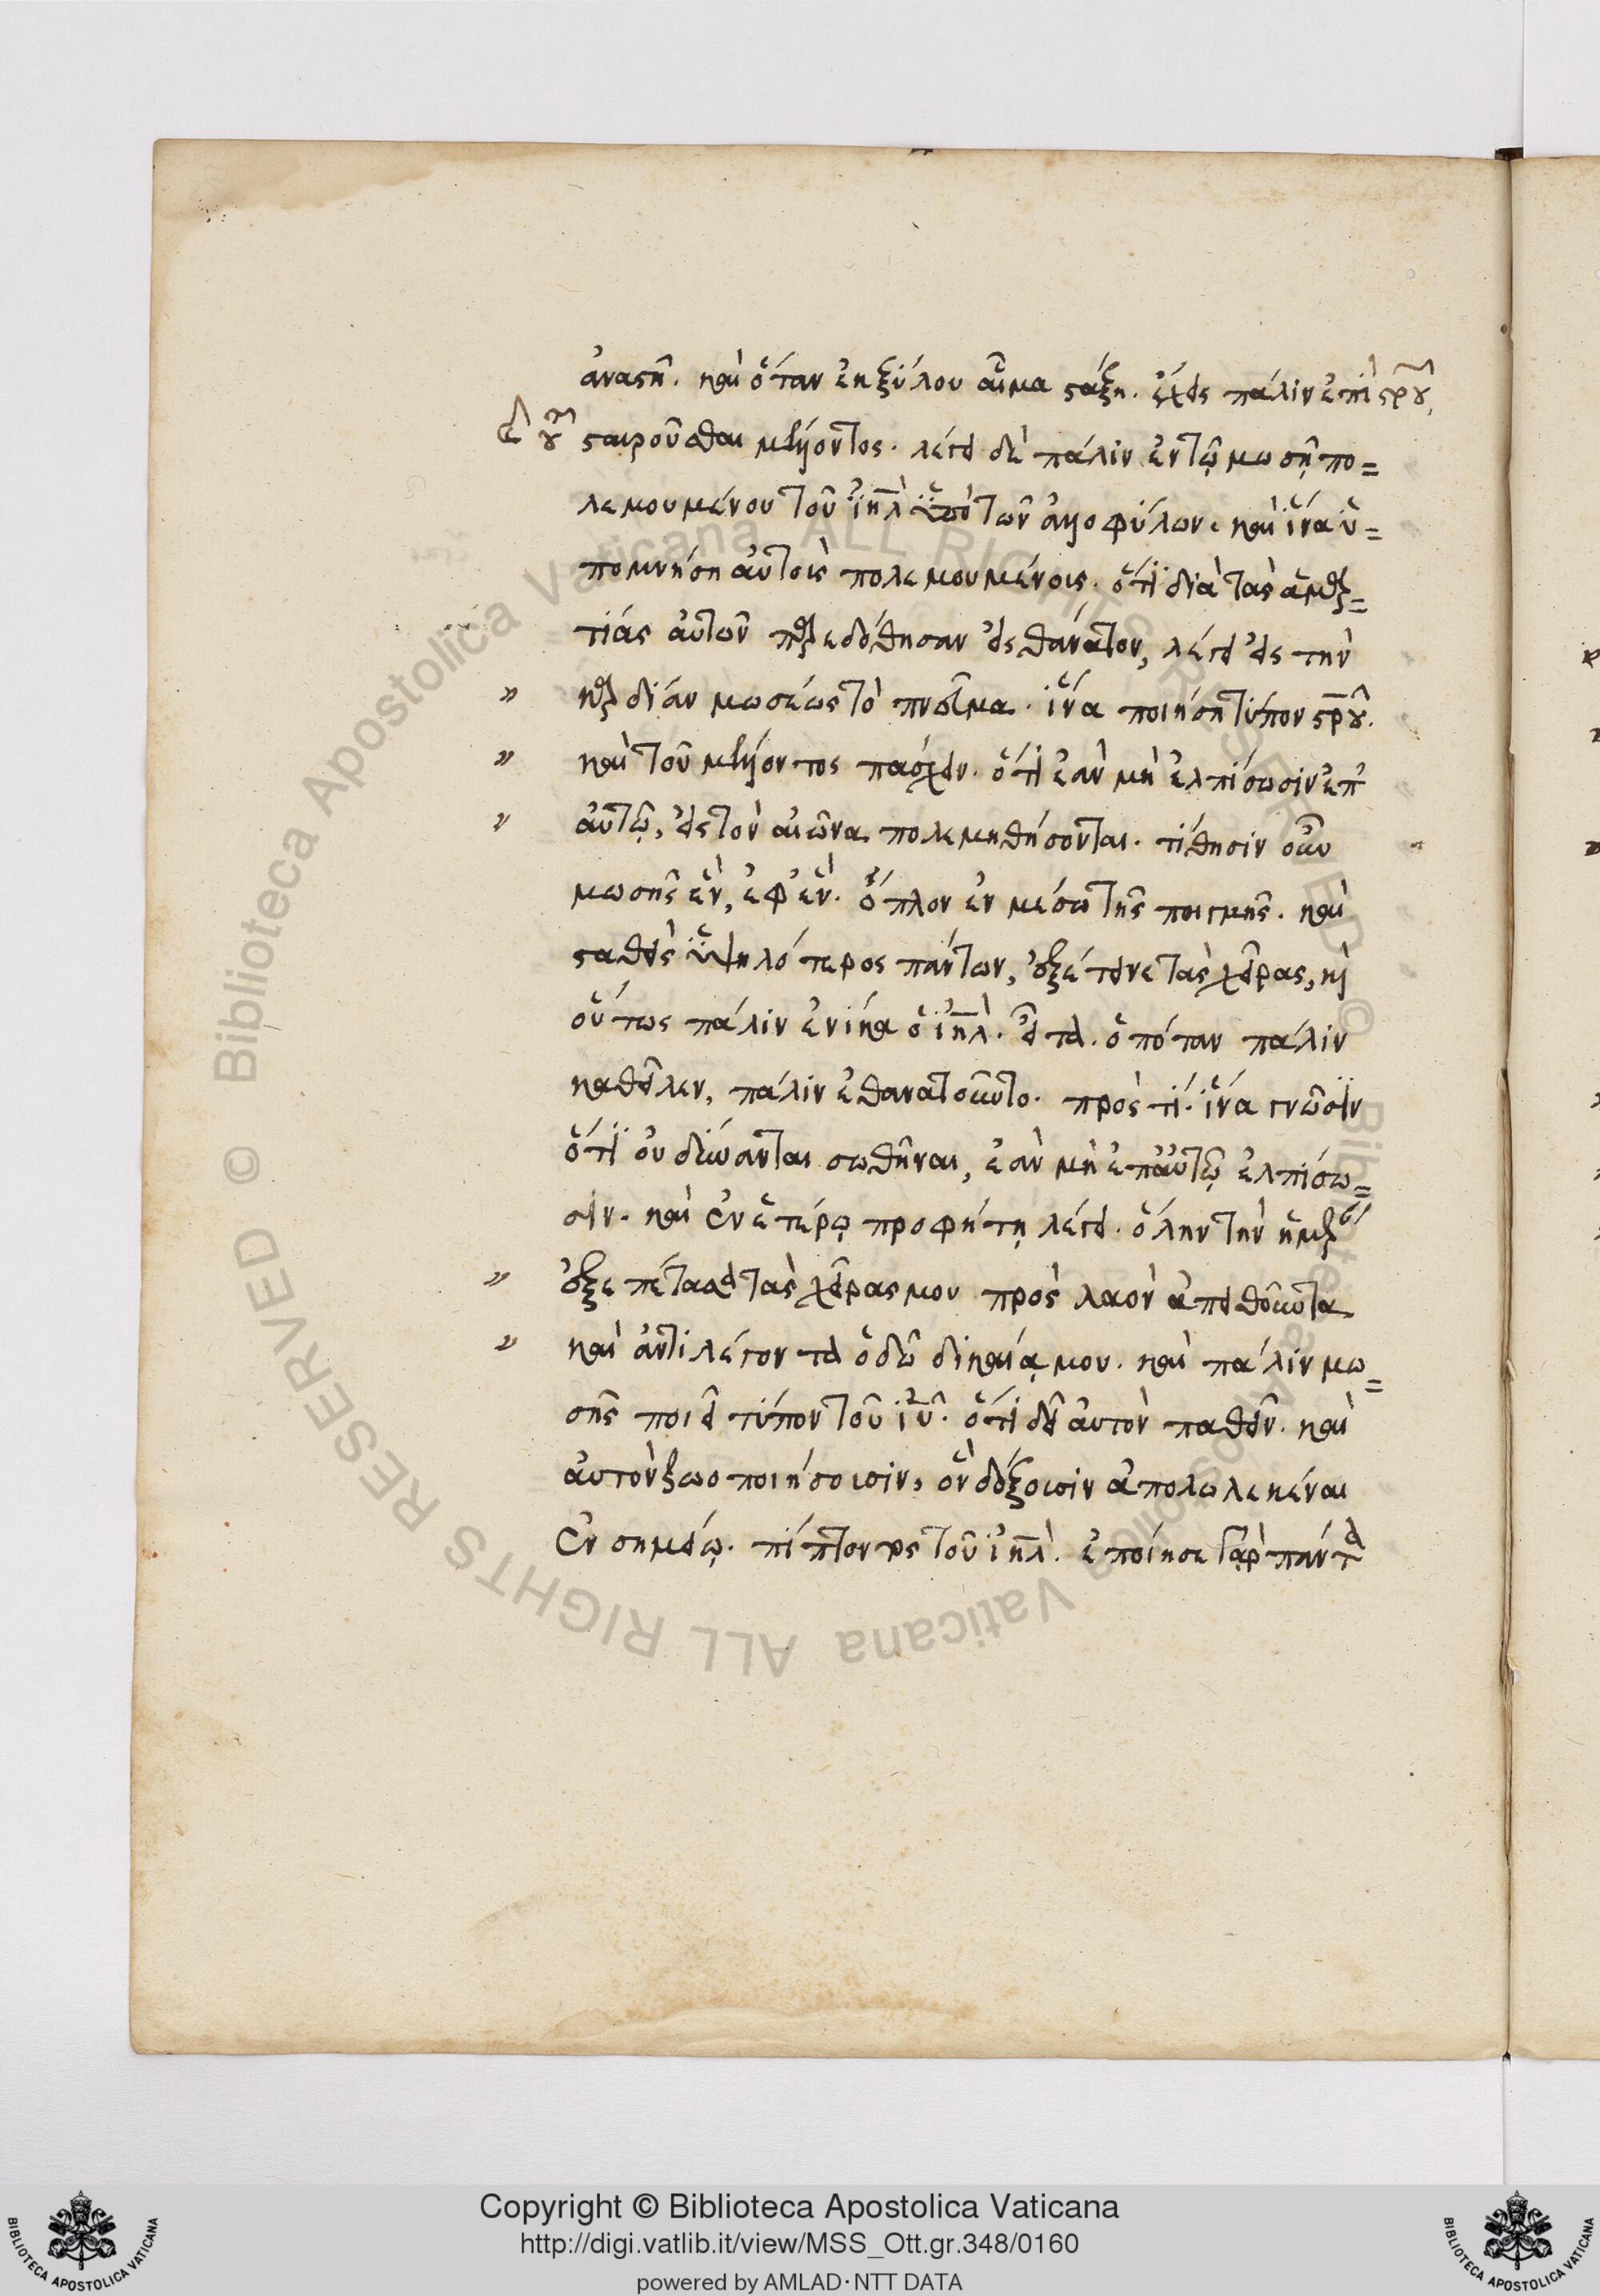 ἀναστῇ. καὶ ὅταν ἐκ ξύλου αἷμα στάξῃ. ἔχεις πάλιν ἐπὶ στρου,
σταυροῦσθαι μέλλοντος. λέγει δὲ πάλιν ἐν τῷ μωσῇ πο=
λεμουμένου τοῦ ἰηλ ὑπὸ τῶν ἀλλοφύλων. καὶ ἵνα ὑ=
πομνήση αὐτοὶς πολεμουμένοις. ὅτι διὰ τὰς ἁμαρ=
τίας αὐτῶν παρεδόθησαν εἰς θάνατον, λέγει εἰς τὴν
» καρδίαν μωσέως τὸ πνεῦμα. ἵνα ποιήσῃ τύπον στρου.
» καὶ τοῦ μέλλοντος πάσχειν. ὅτι ἐὰν μὴ ἐλπίσωσιν ἐπ'
» αὐτῷ, εἰς τὸν αἰῶνα πολεμηθήσονται. τίθησιν οὖν
μωσῆς ἓν, ἐφ' ἓν. ὅπλον ἐν μέσω τῆς ποιγμῆς. καὶ
σταθεὶς ὑψηλότερος πάντων, ἐξέτεινε τὰς χεῖρας, κὶ
οὕτως πάλιν ἐνίκα ὁ ἰηλ. εἶτα. ὁπόταν πάλιν
καθεῖλεν, πάλιν ἐθανατοῦντο. πρὸς τί. ἵνα γνῶσιν
ὅτι οὐ δύνανται σωθῆναι, ἐὰν μὴ ἐπ' αὐτῷ ἐλπίσω=
σιν. καὶ ἐν ἑτέρῳ προφήτῃ λέγει. ὅλην τὴν ἡμέραν
» ἐξεπέτασα τὰς χεῖρας μου πρὸς λαὸν ἀπειθοῦντα
» καὶ ἀντιλέγοντα ὁδῷ δικαίᾳ μου. καὶ πάλιν μω=
σῆς ποιεῖ τύπον τοῦ ἰυ. ὅτι δεῖ αὐτὸν παθεῖν. καὶ
αὐτὸν ζωοποιήσουσιν, ὃν δόξουσιν ἀπολωλεκέναι
ἐν σημείῳ. πίπτοντος τοῦ ἰηλ. ἐποίησε γὰρ πάντα
Copyright © Biblioteca Apostolica Vaticana
http://digi.vatlib.it/view/MSS_Ott.gr.348/0160
powered by AMLAD·NTT DATA